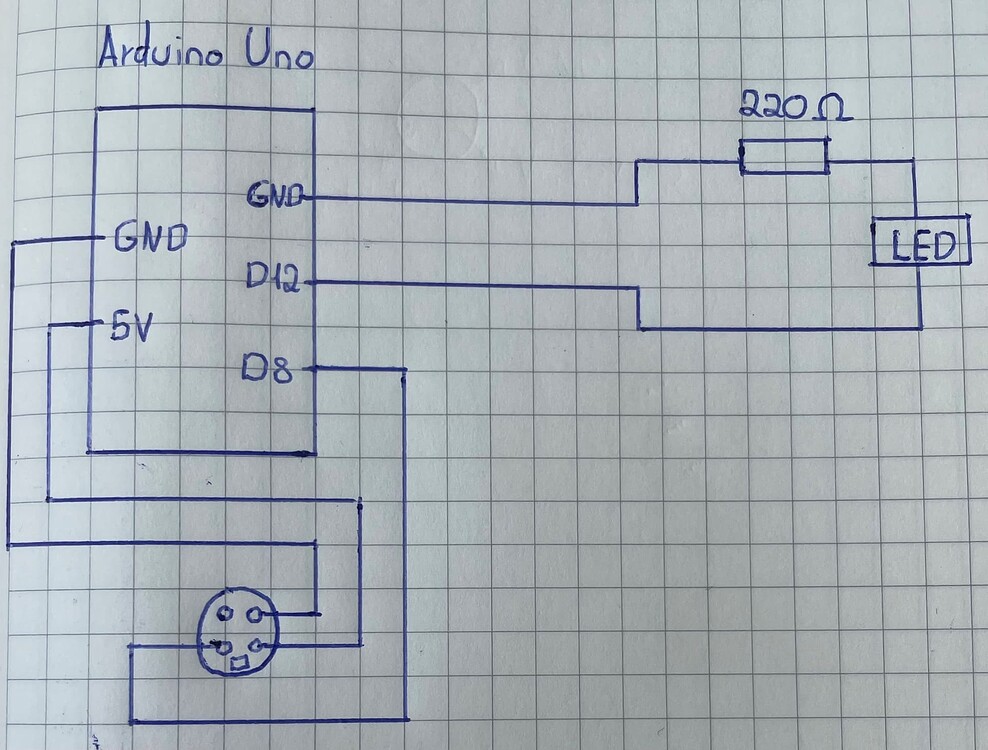 Arduino Uno
220Ω
GND
GND
LED
D12
5V
D8